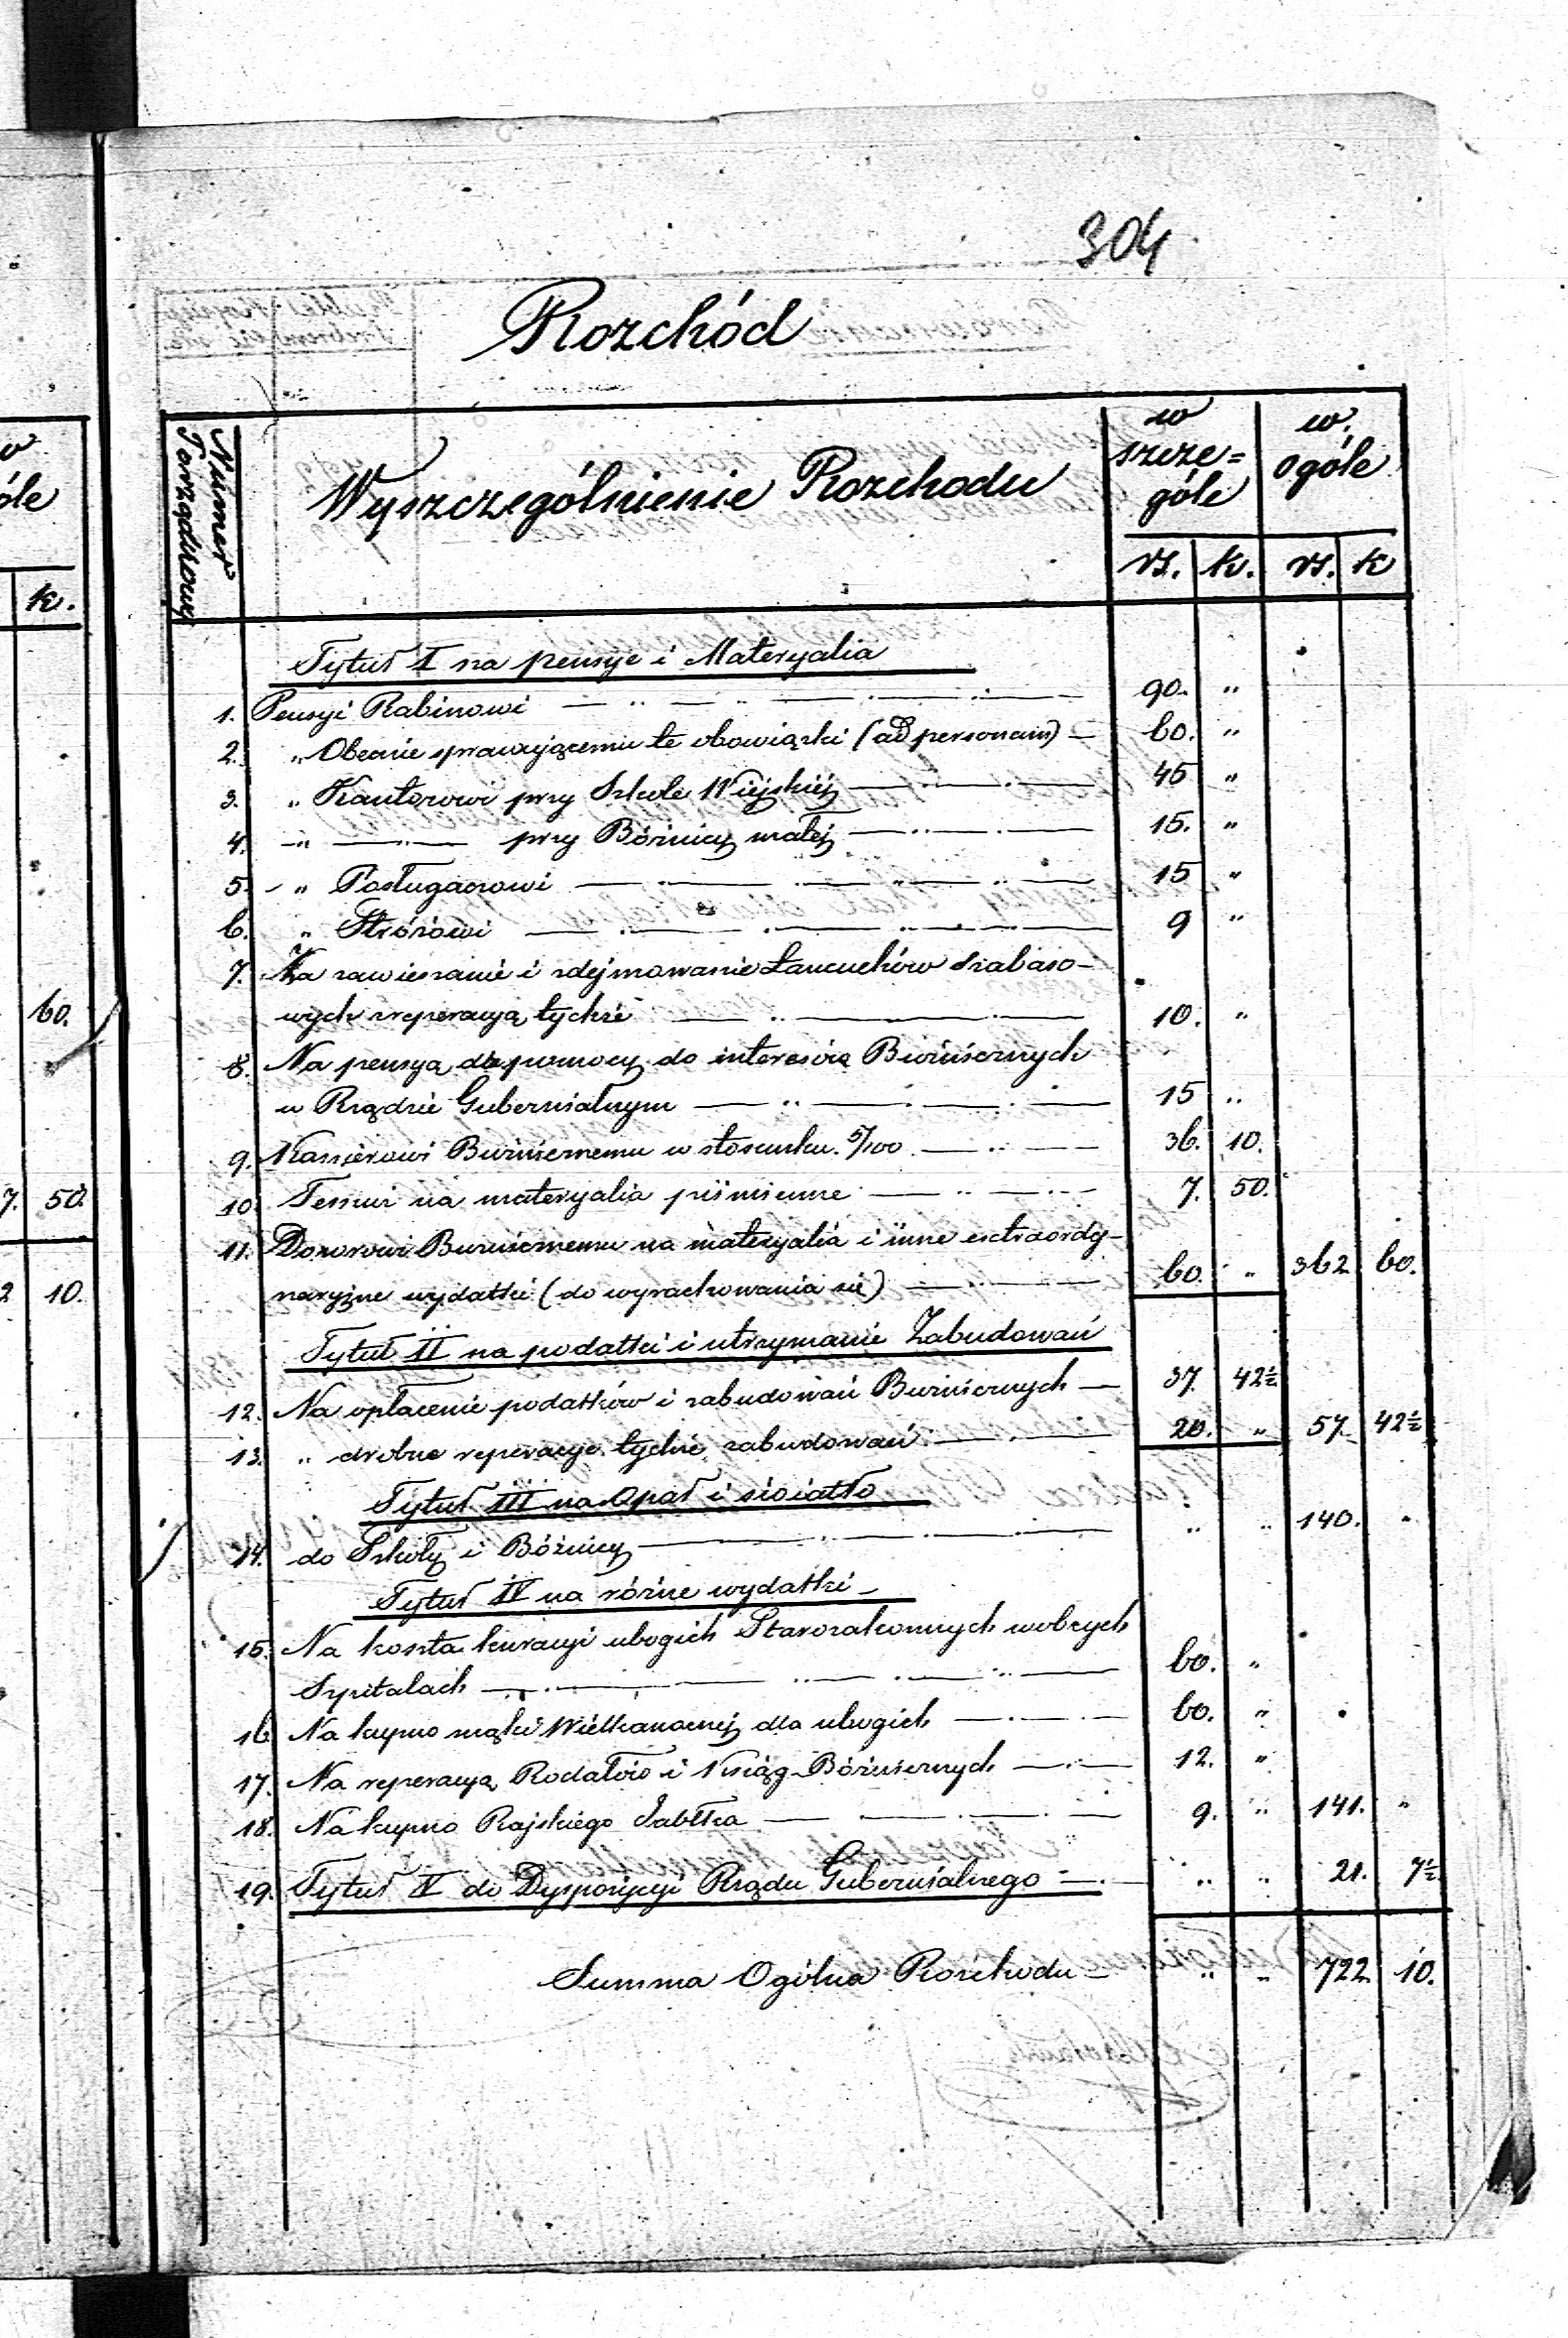 304
Rozchód
Numer Porządkowy
Wyszczególnienie Rozchodu
w szcze=
góle
w.
ogóle
rs. k. rs. k
Tytuł I na pensye i Materyalia
1. Pensyi Rabinowi 90. "
2. " Obecnie sprawującemu te obowiązki (ad personam) 60. "
3. " Kantorowi przy Szkole Wiejskiéj 45 "
4. " " przy Bóźnicy małéj 15. "
5. " Posługaczowi 15 "
6. " Stróżowi 9 "
7. Za zawieszanie i zdejmowanie Łancuchów szabaso-
wych i reperacyą tychże 10. "
8. Na pensyą do pomocy do interesów Bużnicznych
w Rządzie Gubernialnym 15 "
9. Kassierowi Bużnicznemu w stosunku 5/100 36. 10.
10. Temuż na materyalia piśmienne 7. 50.
11. Dozorowi Bużnicznemu na materyalia i inne extraordy-
naryjne wydatki (do wyrachowania się) 60. " 362 60.
Tytuł II na podatki i utrzymanie Zabudowań
12. Na opłacenie podatków i zabudowań Bużnicznych 37. 42½
13. " drobne reperacye tychże zabudowań 20. " 57. 42½
Tytuł III na Opał i światło
14. do Szkoły i Bóżnicy " " 140. "
Tytuł IV na różne wydatki
15. Na koszta kuracyi ubogich Starozakonnych w obcych
Szpitalach 60. "
16 Na kupno mąki Wielkanocnéj dla ubogich 60. "
17. Na reperacyą Rodałów i Ksiąg Bóżnicznych 12. "
18. Na kupno Rajskiego Jabłka 9. " 141. "
19. Tytuł V do Dyspozycyi Rządu Gubernialnego " " 21. 7½
Summa Ogólna Rozchodu " " 722 10.
óle
k.
60.
7. 50.
2 10.